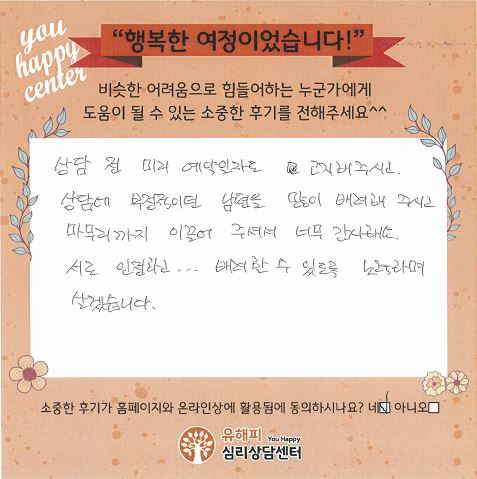 you
happy
center
“행복한 여정이었습니다!”
비슷한 어려움으로 힘들어하는 누군가에게
도움이 될 수 있는 소중한 후기를 전해주세요^^
상담 전 미리 예약일자도 고지해주시고.
상담에 부정적이던 남편을 많이 배려해 주시고
마무리까지 이끌어 주셔서 너무 감사해요.
서로 인정하고... 배려할 수 있도록 노력하며
살겠습니다.
소중한 후기가 홈페이지와 온라인상에 활용됨에 동의하시나요? 네 아니오
유해피 You Happy
심리상담센터